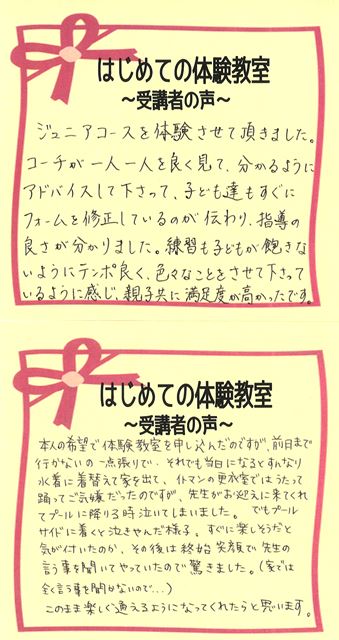 はじめての体験教室
～受講者の声～
ジュニアコースを体験させて頂きました。
コーチが一人一人を良く見て、分かるように
アドバイスして下さって、子ども達もすぐに
フォームを修正しているのが伝わり、指導の
良さが分かりました。練習も子どもが飽きな
いようにテンポ良く、色々なことをさせて下さって
いるように感じ、親子共に満足度が高かったです。
はじめての体験教室
～受講者の声～
本人の希望で体験教室を申し込んだのですが、前日まで
行かないの一点張りで、それでも当日になるとすんなり
水着に着替えて家を出て、イトマンの更衣室ではうたって
踊ってご気嫌だったのですが、先生がお迎えに来てくれ
てプールに降りる時泣いてしまいました。でもプール
サイドに着くと泣きやんだ様子。すぐに楽しそうだと
気が付いたのか、その後は終始笑顔で先生の
言う事を聞いてやっていたので驚きました。(家では
全く言う事を聞かないので…)
このまま楽しく通えるようになってくれたらと思います。